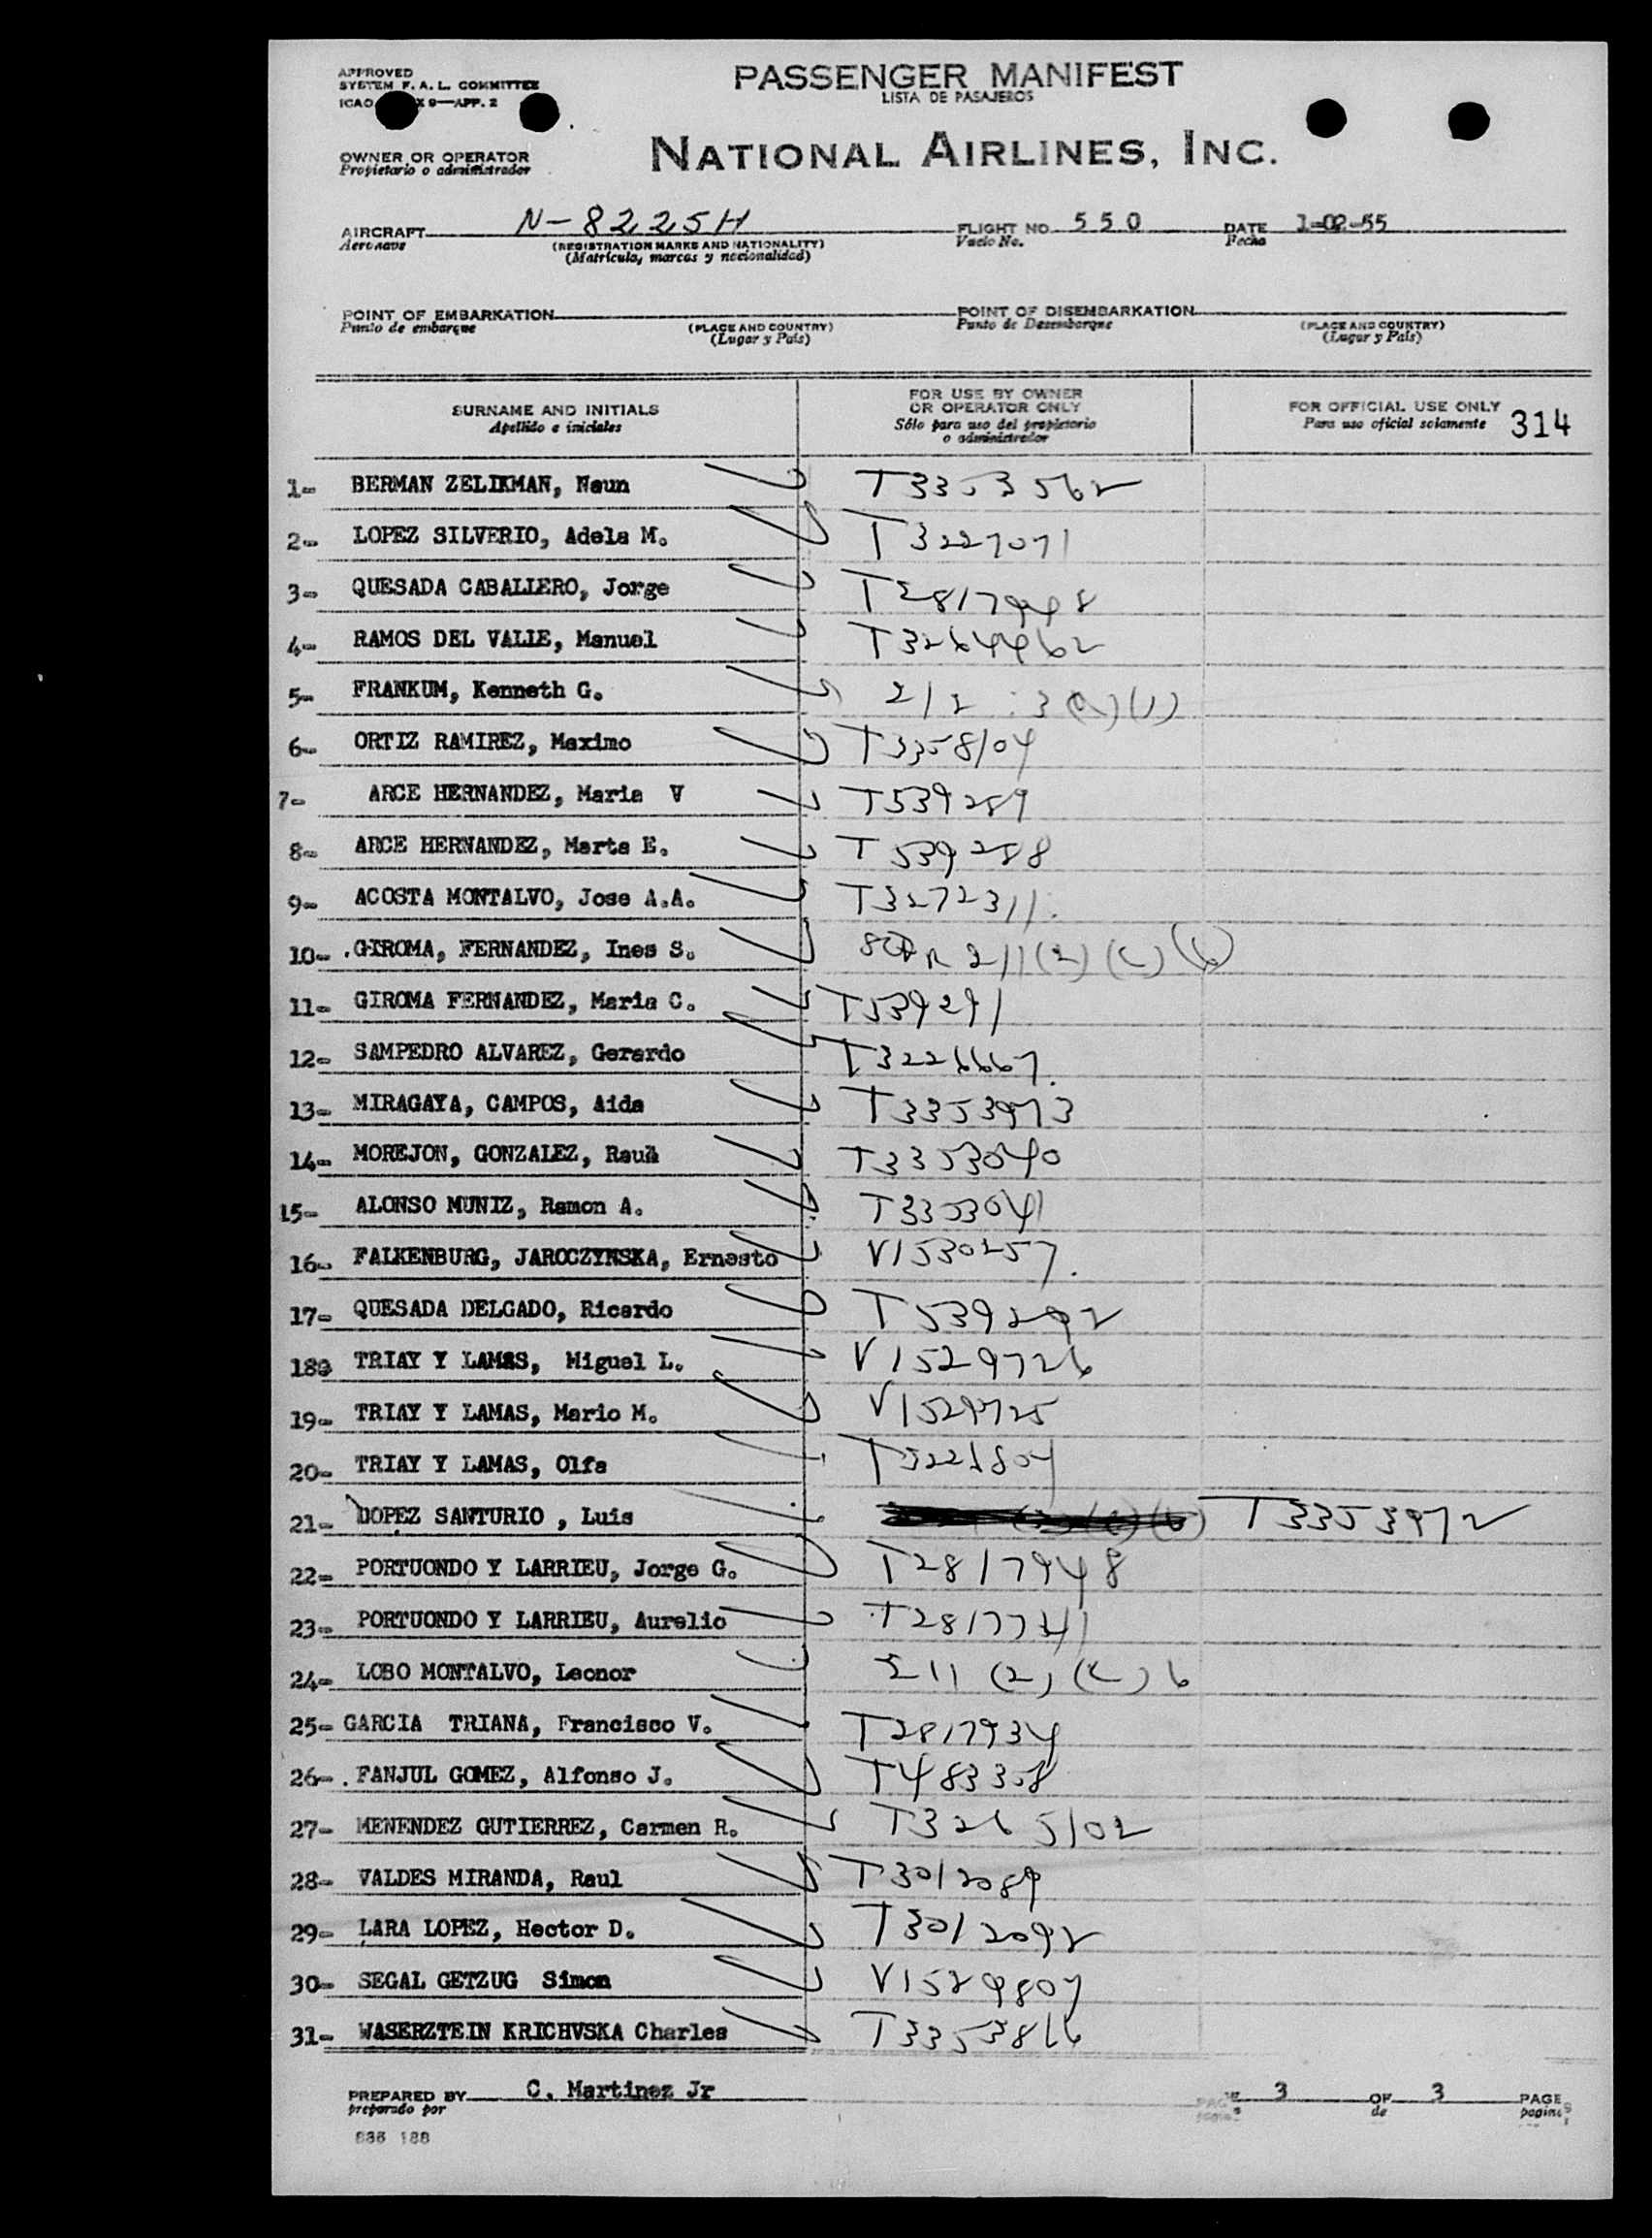 APPROVED
SYSTEM F. A. L. COMMITTEE
ICAO X 9—APP. 2
PASSENGER MANIFEST
LISTA DE PASAJEROS
OWNER OR OPERATOR
Propietario o administrador
NATIONAL AIRLINES, INC.
AIRCRAFT N-8225H FLIGHT NO. 550 DATE 1-02-55
Aeronave (REGISTRATION MARKS AND NATIONALITY) Vuelo No. Fecha
(Matrícula, marcas y nacionalidad)
POINT OF EMBARKATION POINT OF DISEMBARKATION
Punto de embarque (PLACE AND COUNTRY) Punto de Desembarque (PLACE AND COUNTRY)
(Lugar y País) (Lugar y País)
SURNAME AND INITIALS
Apellido e iniciales
FOR USE BY OWNER
OR OPERATOR ONLY
Sólo para uso del propietario
o administrador
FOR OFFICIAL USE ONLY
Para uso oficial solamente 314
1- BERMAN ZELIKMAN, Naun T3353562
2- LOPEZ SILVERIO, Adela M. T3227071
3- QUESADA CABALLERO, Jorge
4- RAMOS DEL VALLE, Manuel T3264462
5- FRANKUM, Kenneth G. 212
6- ORTIZ RAMIREZ, Maximo T3358104
7- ARCE HERNANDEZ, Maria V T539289
8- ARCE HERNANDEZ, Marta E. T539288
9- ACOSTA MONTALVO, Jose A.A. T3272311
10- GIROMA, FERNANDEZ, Ines S. 211(2)(c)(6)
11- GIROMA FERNANDEZ, Maria C. T539291
12- SAMPEDRO ALVAREZ, Gerardo T3226667
13- MIRAGAYA, CAMPOS, Aida T3353973
14- MOREJON, GONZALEZ, Raul T3353040
15- ALONSO MUNIZ, Ramon A. T3353041
16- FALKENBURG, JAROCZYNSKA, Ernesto V1530257
17- QUESADA DELGADO, Ricardo T539292
18- TRIAY Y LAMAS, Miguel L. V1529726
19- TRIAY Y LAMAS, Mario M. V1529725
20- TRIAY Y LAMAS, Olfa
21- LOPEZ SANTURIO , Luis T3353972
22- PORTUONDO Y LARRIEU, Jorge G. T2817948
23- PORTUONDO Y LARRIEU, Aurelio
24- LOBO MONTALVO, Leonor 211 (2) (c) 6
25- GARCIA TRIANA, Francisco V. T2817934
26- FANJUL GOMEZ, Alfonso J. T483358
27- MENENDEZ GUTIERREZ, Carmen R. T3265102
28- VALDES MIRANDA, Raul T3012089
29- LARA LOPEZ, Hector D. T3012092
30- SEGAL GETZUG Simon V1529807
31- WASERZTEIN KRICHVSKA Charles T3353866
PREPARED BY C. Martinez Jr PAGE 3 OF 3 PAGE
preparado por de